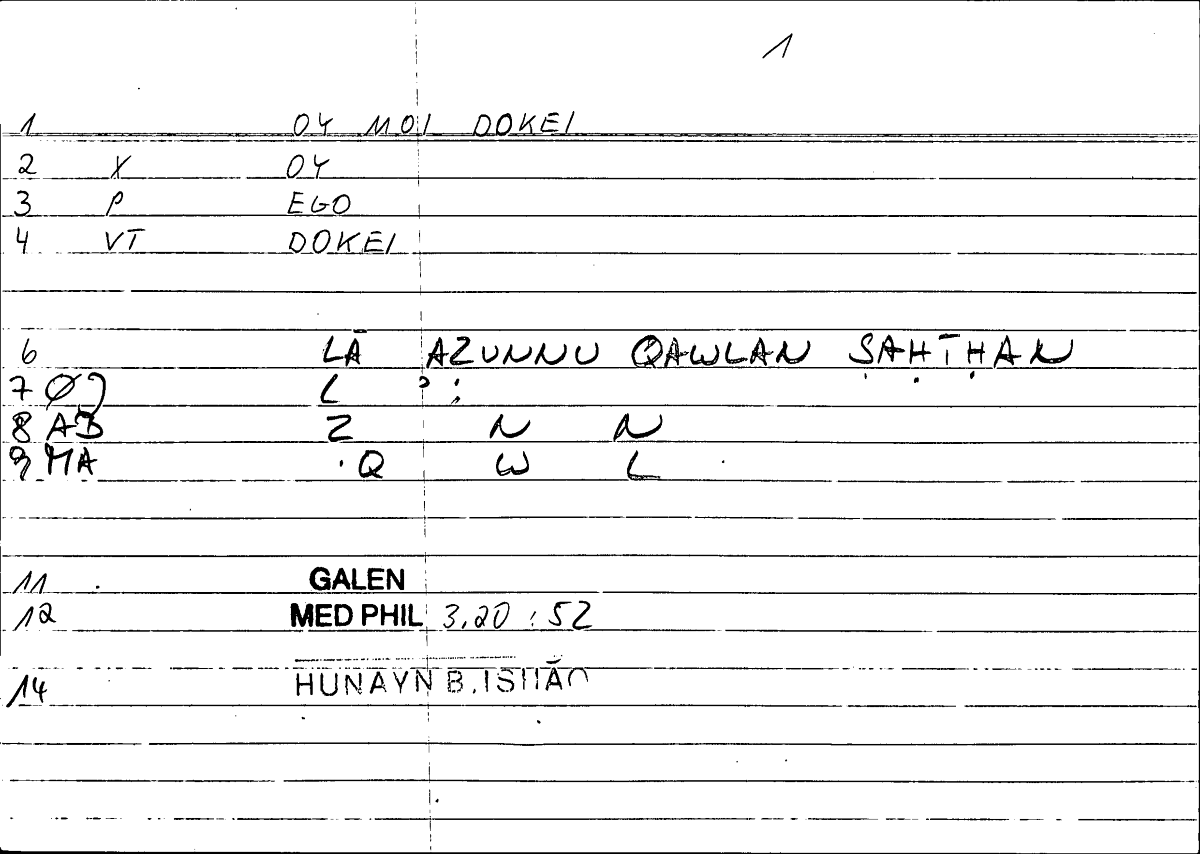 1
1 OY MOI DOKEI
2 X OY
3 P EGO
4 VT DOKEI
6 LĀ AZUNNU QAWLAN ṢAḤĪḤAN
7 Ø L ʾ :
8 AB Z N N
9 MA Q W L
11 GALEN
12 MED PHIL 3,20 : 52
14 HUNAYN B. ISḤĀQ